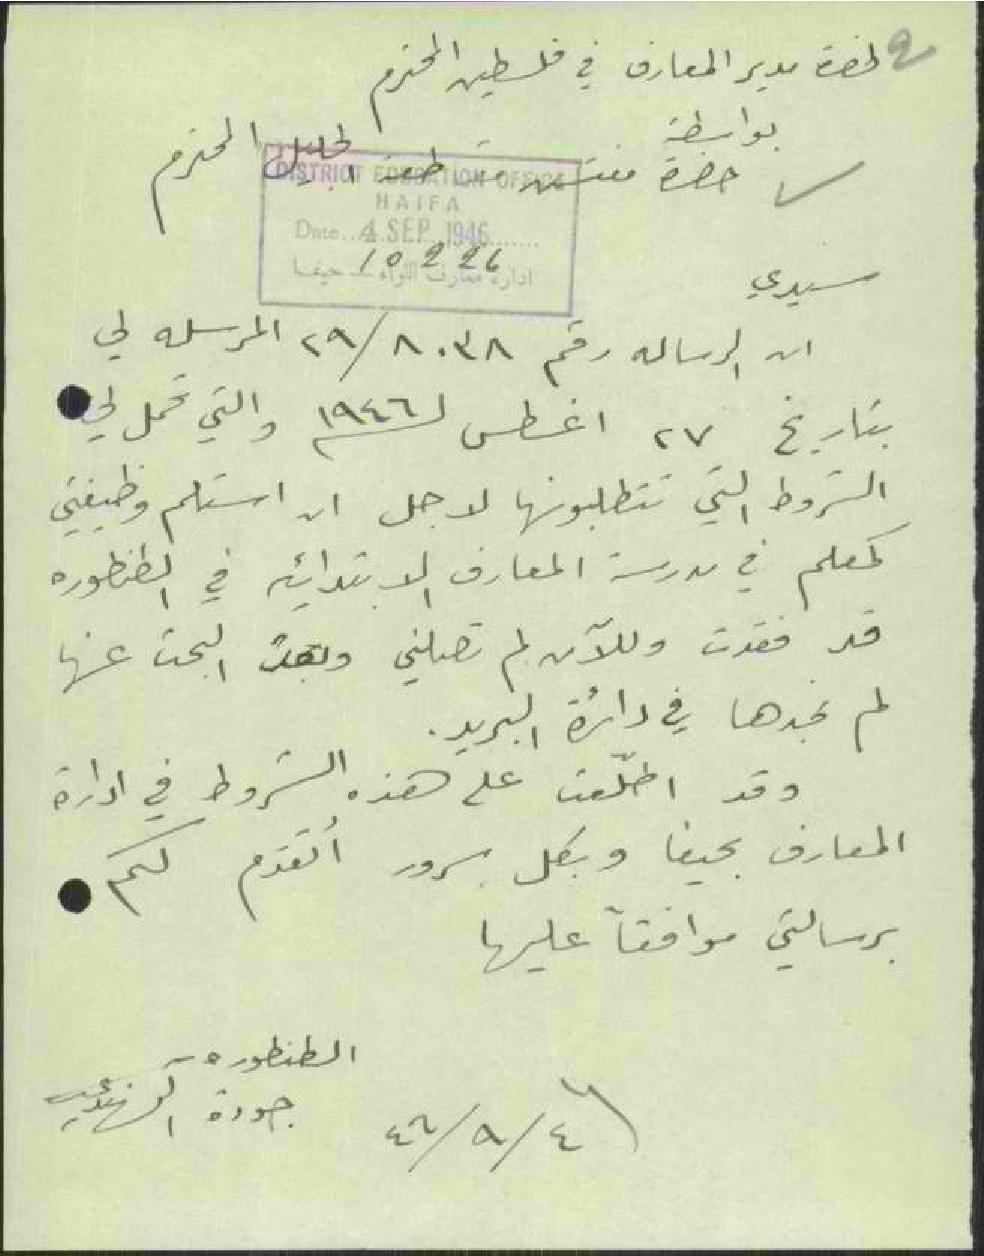 لحضرة مدير المعارف في فلسطين المحترم
بواسطة
حضرة مفتش مقاطعة الجليل المحترم
DISTRICT EDUCATION OFFICE
HAIFA
Date... 4 SEP. 1946.......
ادارة معارف اللواء — حيفا
سيدي
ان الرساله رقم ٢٩/٨٠٣٨ المرسله لي
بتاريخ ٢٧ اغسطس لسنة ١٩٤٦ والتي تحمل لي
الشروط التي تتطلبونها لاجل ان استلم وظيفتي
كمعلم في مدرسة المعارف الابتدائيه في الطنطوره
قد فقدت وللآن لم تصلني وبعد البحث عنها
لم نجدها في دائرة البريد.
وقد اطلّعت على هذه الشروط في ادارة
المعارف بحيفا وبكل سرور أتقدم لكم
برسالتي موافقاً عليها
الطنطوره
جودة
٤٦/٩/٤